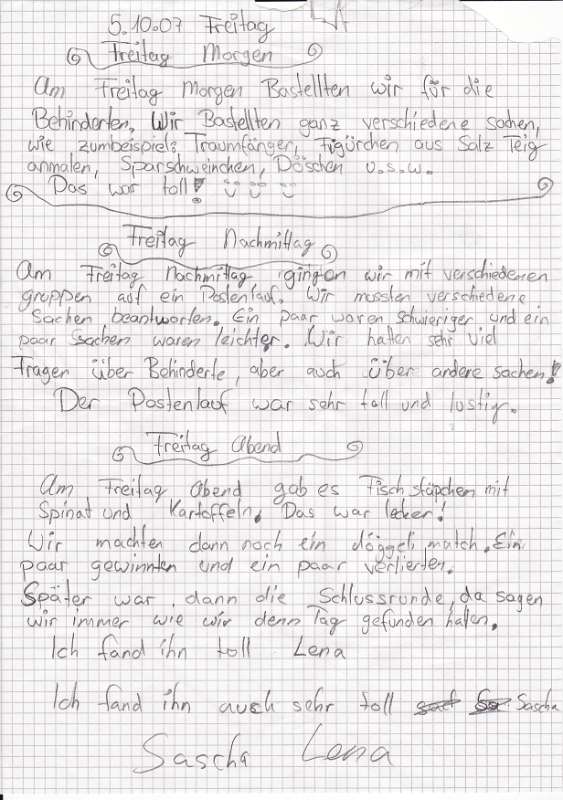 5.10.07 Freitag
Freitag Morgen
Am Freitag Morgen Bastellten wir für die
Behinderten. Wir Bastellten ganz verschiedene sachen,
wie zumbeispiel: Traumfänger, Figürchen aus Salz Teig
anmalen, Sparschweinchen, Döschen u.s.w.
Das war toll!
Freitag Nachmittag
Am Freitag Nachmitag gingen wir mit verschiedenen
gruppen auf ein Postenlauf. Wir mussten verschiedene
Sachen beantworten. Ein paar waren schwieriger und ein
paar sachen waren leichter. Wir hatten sehr viel
Fragen über Behinderte, aber auch über andere sachen!
Der Postenlauf war sehr toll und lustig.
Freitag Abend
Am Freitag Abend gab es Fischstäpchen mit
Spinat und Kartoffeln. Das war lecker!
Wir machten dann noch ein döggeli match. Ein
paar gewinnten und ein paar verlierten.
Später war dann die Schlussrunde, da sagen
wir immer wie wir denn Tag gefunden haten.
Ich fand ihn toll Lena
Ich fand ihn auch sehr toll Sascha
Sascha Lena